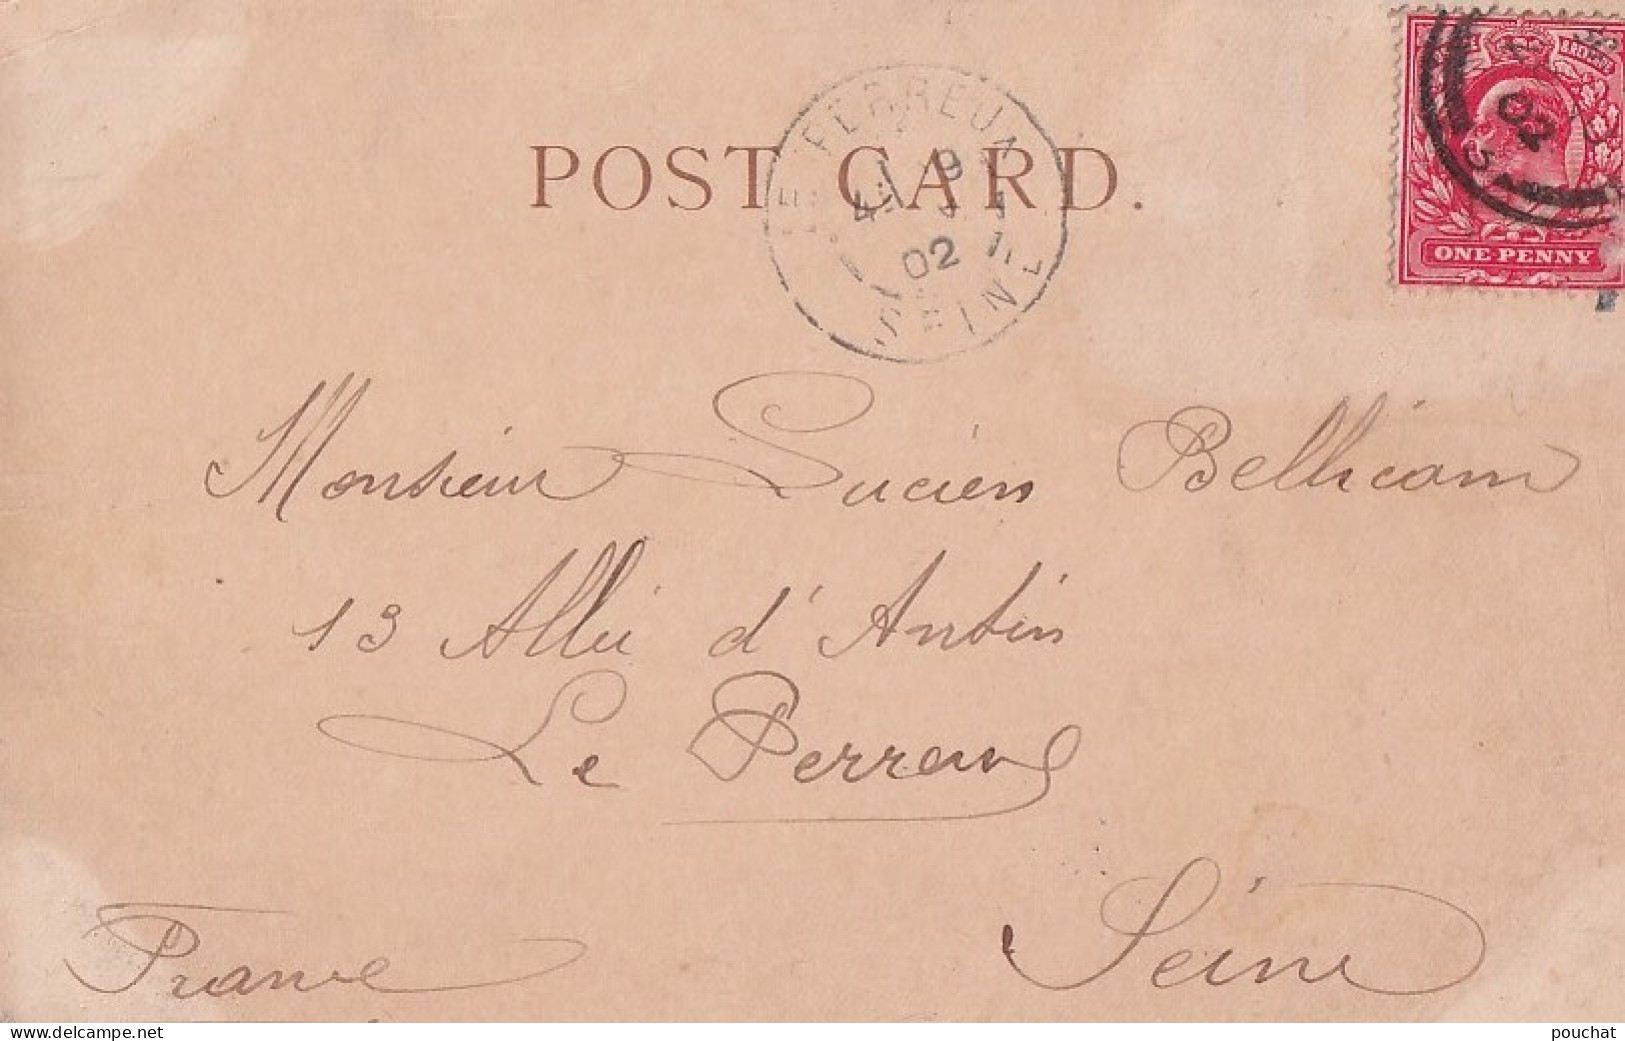 POST CARD.
LE PERREUX
9
02
SEINE
02
ONE PENNY
Monsieur Lucien Bellicam
13 Allée d'Antin
Le Perreux
Seine
France
delcampe.net
pouchat